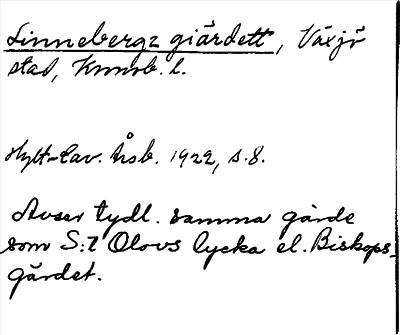 Linnebergz giärdett, Växjö
stad, Kronob. l.
Hylt-Cav. Årsb. 1922, s. 8.
Avser tydl. samma gärde
som S:t Olovs lycka el. Biskops-
gärdet.